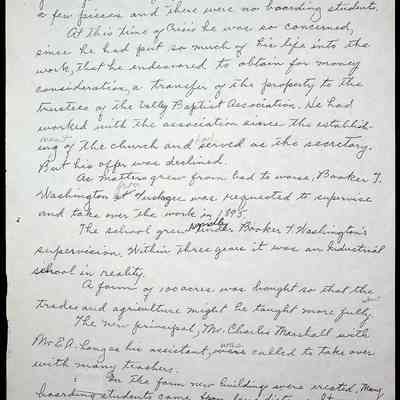 a few pieces and there were no boarding students.
At this time of Crisis he was so concerned,
since he had put so much of his life into the
work, that he endeavored to obtain for money
consideration, a transfer of the property to the
trustees of the Valley Baptist Association. He had
worked with the association since the establish-
ment
ing of the church and had served as the secretary.
But his offer was declined.
As matters grew from bad to worse, Booker T.
Washington of Tuskegee was requested to supervise
and take over the work in 1895.
The school grew rapidly under Booker T Washington's
supervision. Within three years it was an Industrial
school in reality.
A farm of 100 acres was bought so that the
trades and agriculture might be taught more fully.
The new principal, Mr. Charles Marshall with
Mr E.A. Long as his assistant, were called to take over
was
with many teachers.
On the farm new building were erected, Many
boarding students came